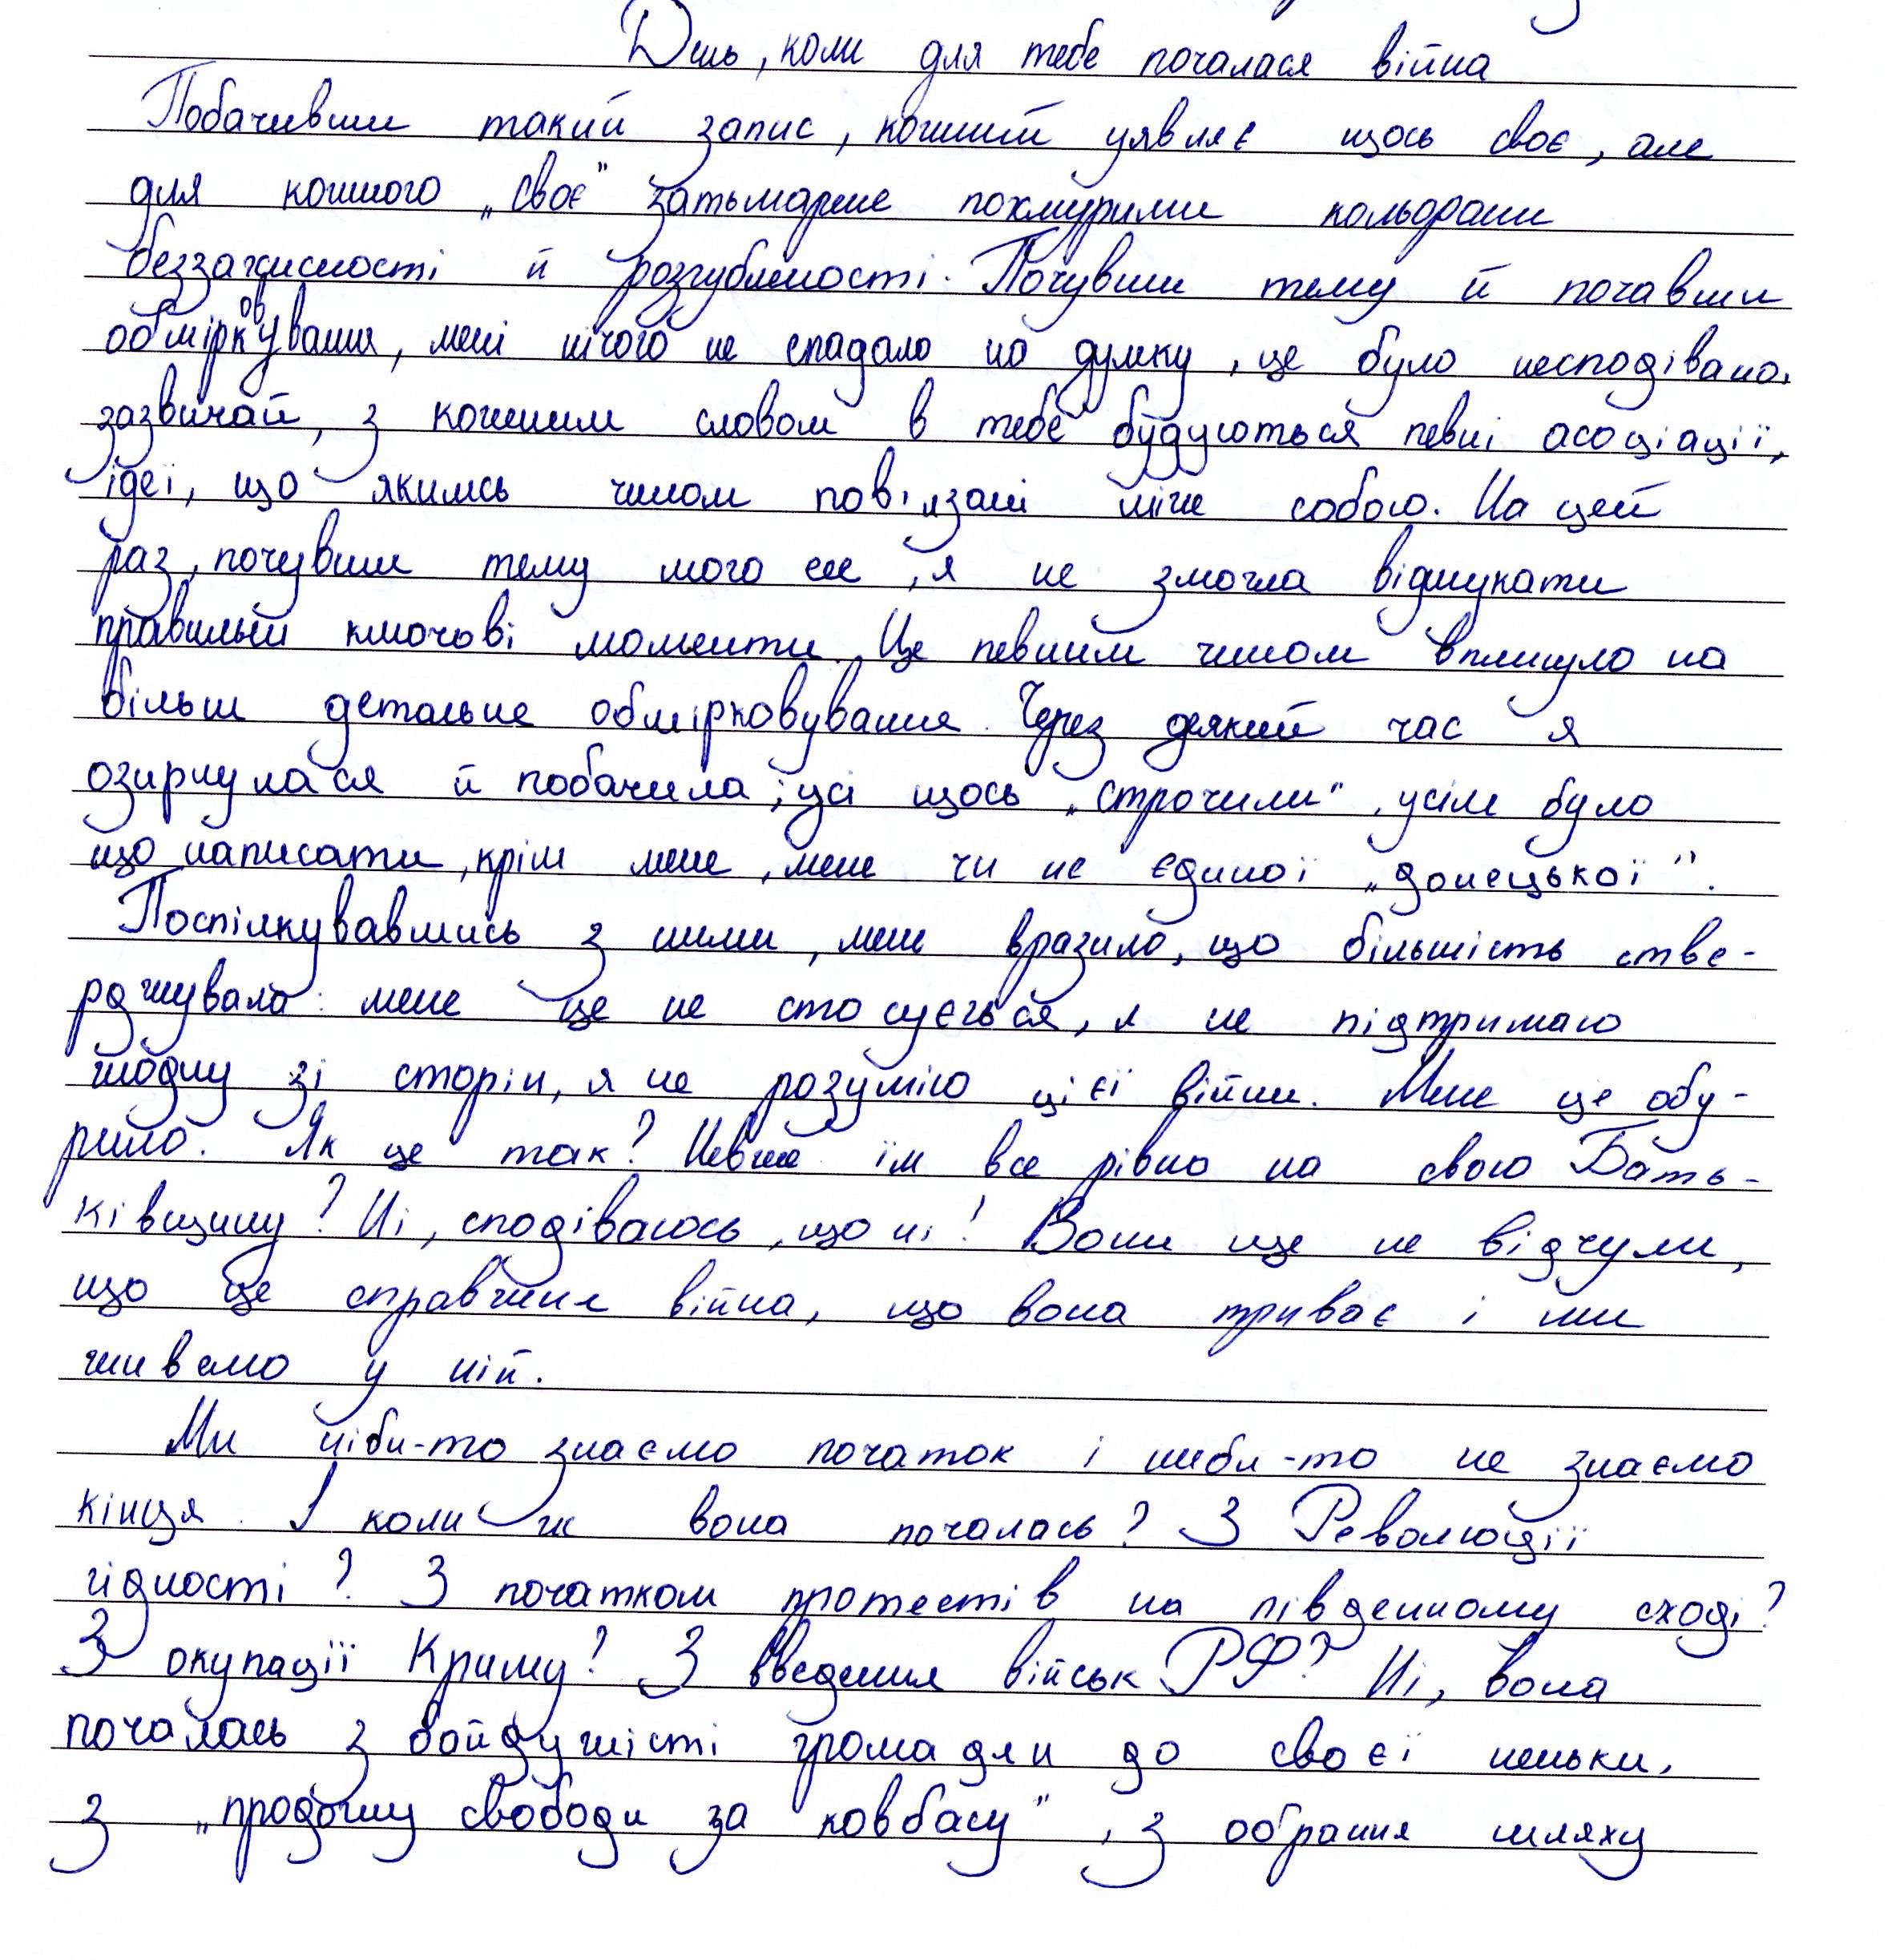 День, коли для тебе почалася війна
Побачивши такий запис, кожний уявляє щось своє, але
для кожного „своє" затьмарене похмурими кольорами
беззахисності й розгубленості. Почувши тему й почавши
обмірковування, мені нічого не спадало на думку, це було несподівано,
зазвичай, з кожним словом в тебе будуються певні асоціації,
ідеї, що якимсь чином пов'язані між собою. На цей
раз, почувши тему мого есе, я не змогла відшукати
правильні ключові моменти. Це певним чином вплинуло на
більш детальне обмірковування. Через деякий час я
озирнулася й побачила, усі щось „строчили", усім було
що написати, крім мене, мене чи не єдиної „донецької".
Поспілкувавшись з ними, мене вразило, що більшість стве-
рджувала: мене це не стосується, я не підтримаю
жодну зі сторін, я не розумію цієї війни. Мене це обу-
рило. Як це так? Невже їм все рівно на свою Бать-
ківщину? Ні, сподіваюсь, що ні! Вони ще не відчули,
що це справжня війна, що вона триває і ми
живемо у ній.
Ми ніби-то знаємо початок і ниби-то не знаємо
кінця. І коли ж вона почалась? З Революції
гідності? З початком протестів на південному сході?
З окупації Криму? З введення військ РФ? Ні, вона
почалась з байдужісті громадян до своєї неньки,
з „продажу свободи за ковбасу", з обрання шляху